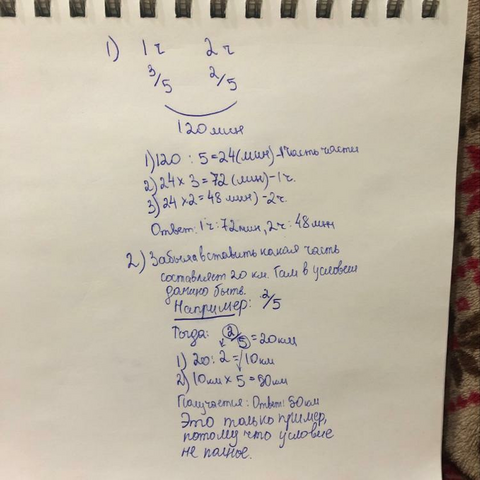 1) 1 ч 2 ч
3/5 2/5
120 мин
1) 120 : 5 = 24 (мин) - 1 часть части
2) 24 × 3 = 72 (мин) - 1 ч.
3) 24 × 2 = 48 мин) - 2 ч.
Ответ: 1 ч: 72 мин, 2 ч: 48 мин
2) Забыла вставить какая часть
составляет 20 км. Там в условеи
должно быть.
Например: 2/5
Тогда: 2/5 = 20 км
1) 20 : 2 = 10 км
2) 10 км × 5 = 50 км
Получается: Ответ: 50 км
Это только пример,
потому что условие
не полное.